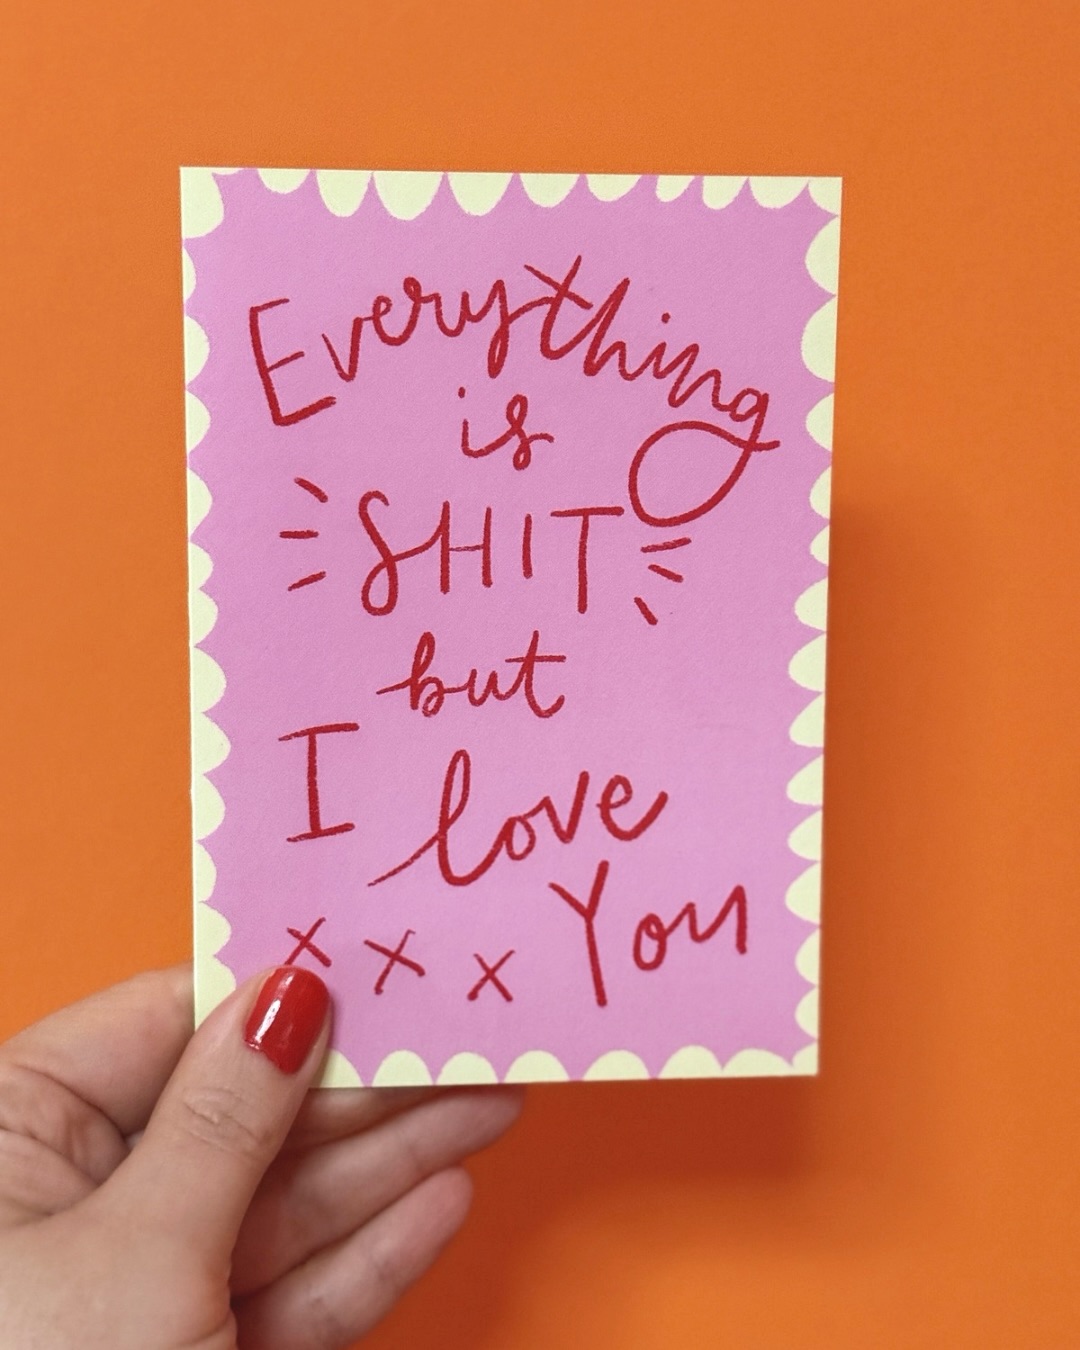 Everything
is
SHIT
but
I love
You
x x x